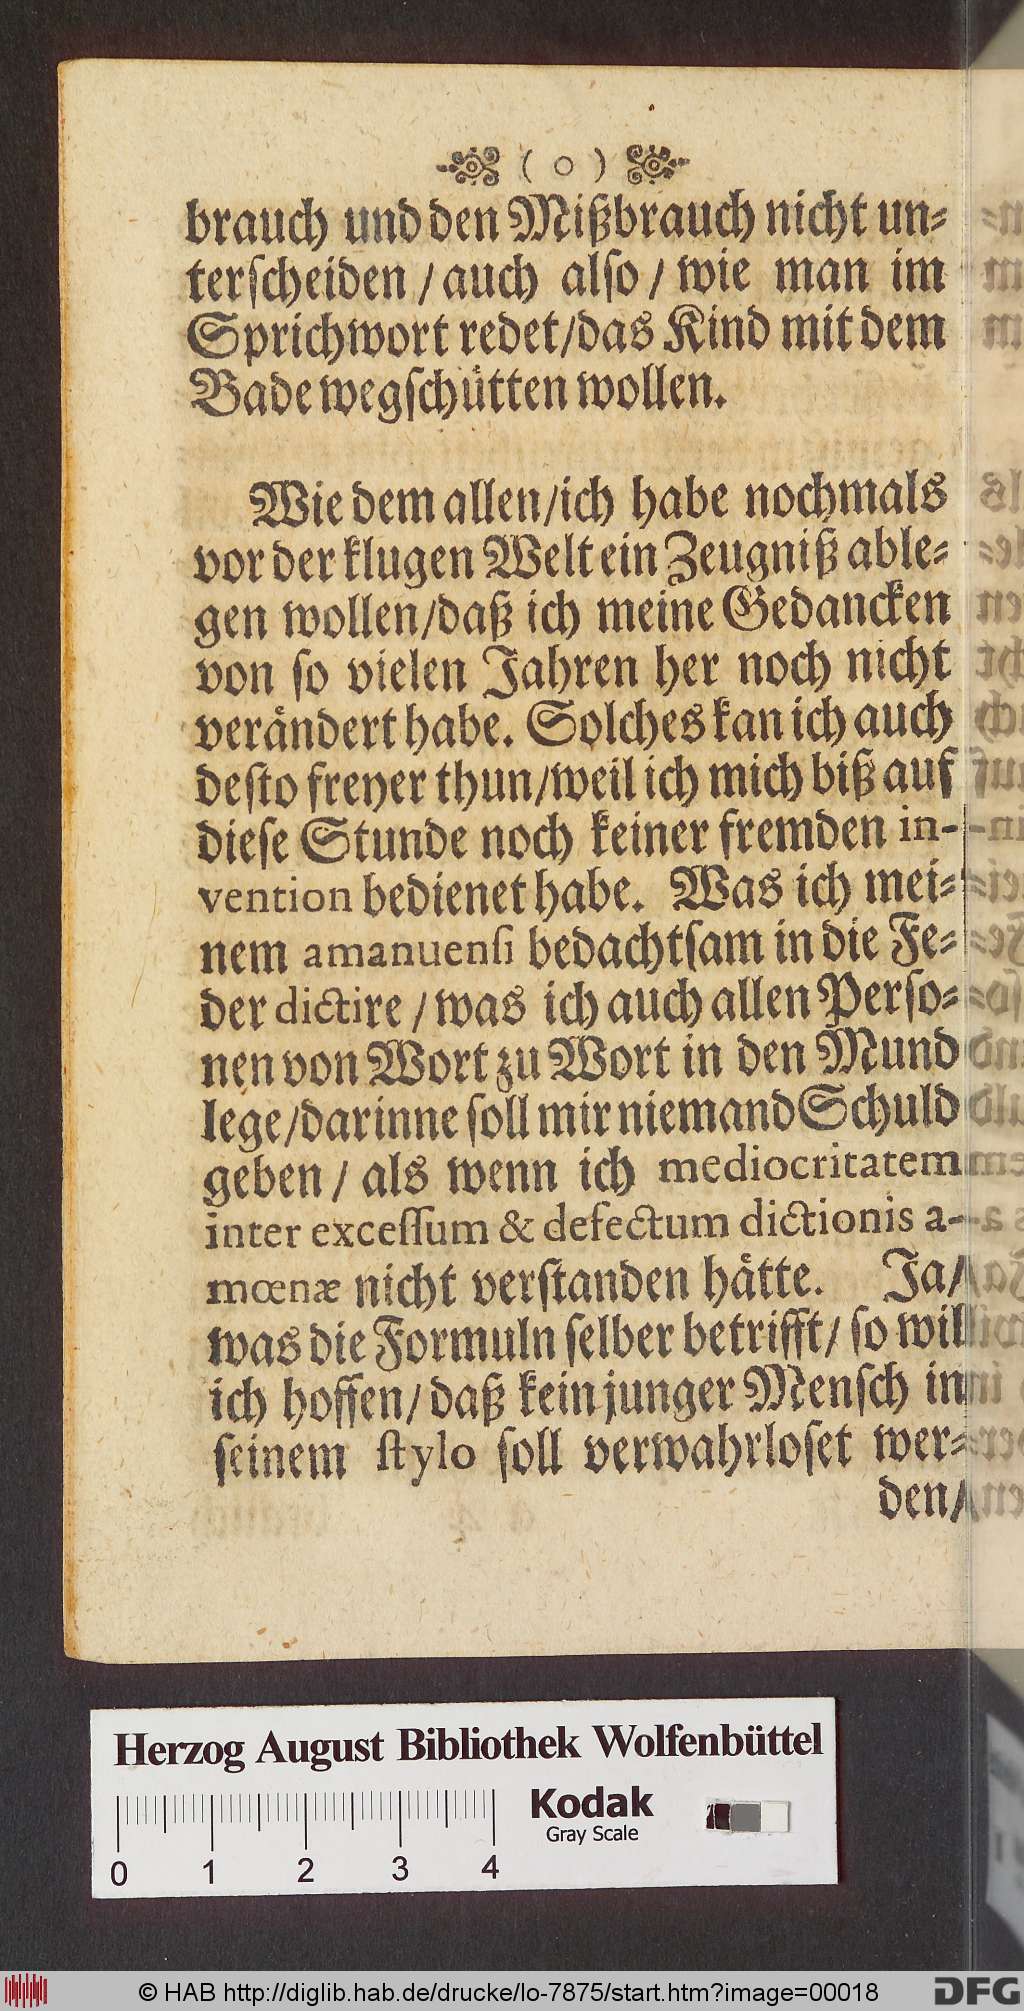 ( o )
brauch und den Mißbrauch nicht un-
terscheiden / auch also / wie man im
Sprichwort redet / das Kind mit dem
Bade wegschütten wollen.
Wie dem allen / ich habe nochmals
vor der klugen Welt ein Zeugniß able-
gen wollen / daß ich meine Gedancken
von so vielen Jahren her noch nicht
verändert habe. Solches kan ich auch
desto freyer thun / weil ich mich biß auf
diese Stunde noch keiner fremden in-
vention bedienet habe. Was ich mei-
nem amanuensi bedachtsam in die Fe-
der dictire / was ich auch allen Perso-
nen von Wort zu Wort in den Mund
lege / darinne soll mir niemand Schuld
geben / als wenn ich mediocritatem
inter excessum & defectum dictionis a-
mœnæ nicht verstanden hätte. Ja /
was die Formuln selber betrifft / so will
ich hoffen / daß kein junger Mensch in
seinem stylo soll verwahrloset wer-
den /
Herzog August Bibliothek Wolfenbüttel
Kodak
Gray Scale
0 1 2 3 4
© HAB http://diglib.hab.de/drucke/lo-7875/start.htm?image=00018
DFG